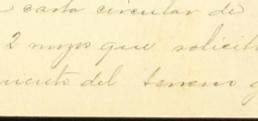 carta circular de
2 mozos que solicit
miento del terreno